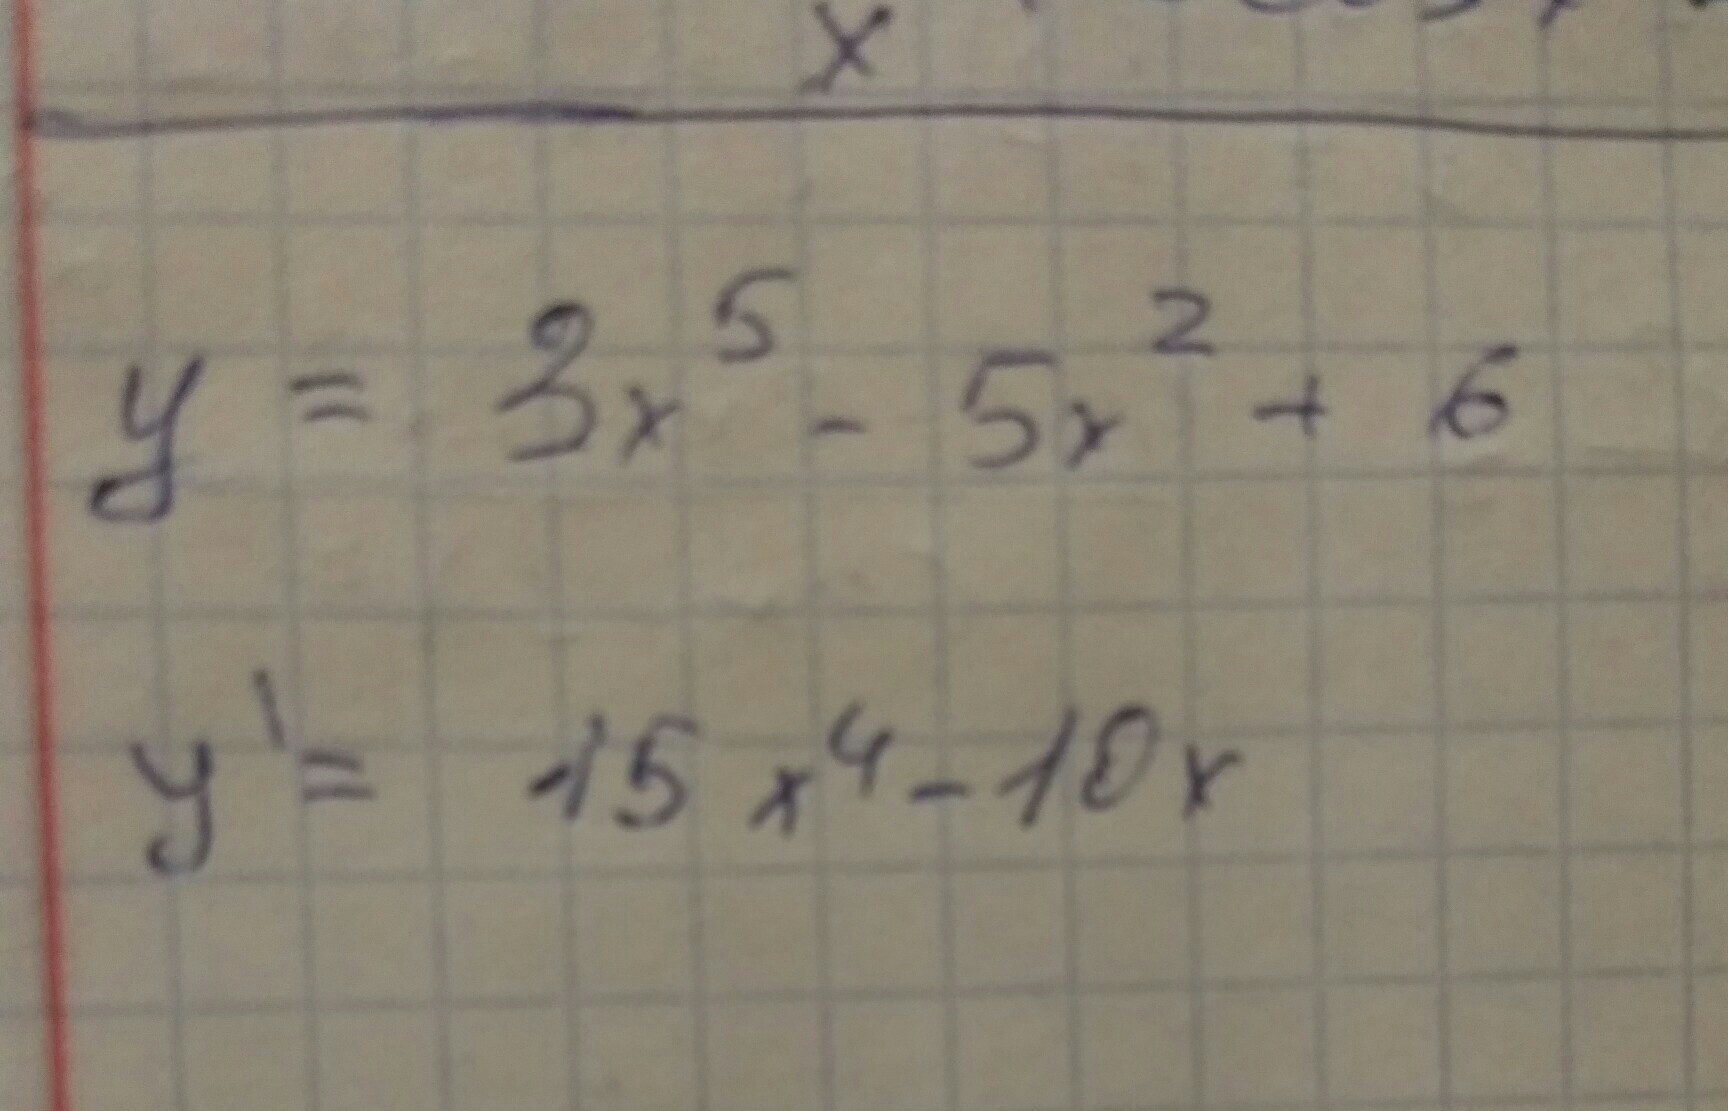 x
y = 3x⁵ - 5x² + 6
y' = 15x⁴ - 10x